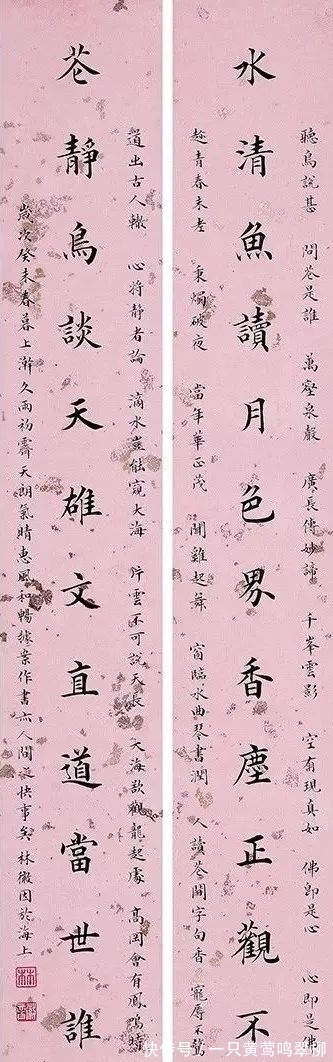 聽鳥說甚 問花是誰 萬壑泉聲 廣長傳妙諦 千峯雲影 空有現真如 佛即是心 心即是佛
水清魚讀月色界香塵正觀不
趁青春未老 秉燭破夜 當年華正茂 聞雞起舞 窗臨水曲琴書潤 人讀花間字句香 寵辱不
道出古人轍 心將靜者論 滴水豈能窺大海 片雲不可說天長 大海欲觀龍起處 高岡會有鳳鳴時
花靜鳥談天雄文直道當世誰
歲次癸未春暮上澣久雨初霽天朗氣晴惠風和暢據案作書亦人間快事矣林徽因於海上
快传号/一只黄莺鸣翠柳